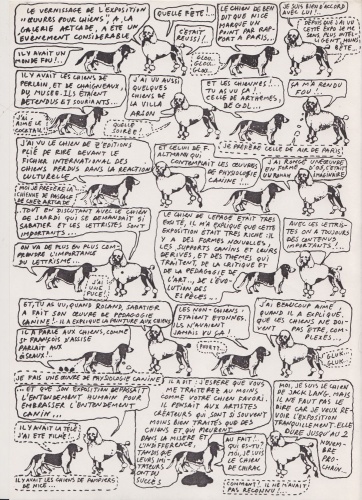 LE VERNISSAGE DE L'EXPOSITION
"ŒUVRES POUR CHIENS", A LA
GALERIE ARTCADE, A ÉTÉ UN
ÉVÈNEMENT CONSIDÉRABLE
QUELLE FÊTE!...
C'ÉTAIT
RÉUSSI!
LE CHIEN DE BEN
DIT QUE NICE
MARQUE UN
POINT PAR RAP-
PORT A PARIS.
JE SUIS BIEN D'ACCORD
AVEC LUI!
DEPUIS QUE J'AI VU
CETTE EXPO JE ME
SENS PLUS INTEL-
LIGENT, MOINS
BÊTE.
IL Y AVAIT UN
MONDE FOU!...
GLOU...
GLOU...
GLOU...
IL Y AVAIT LES CHIENS DE
FERLAIN, ET DE CHAIGNEAU,
DU MUSÉE. ILS ÉTAIENT
DÉTENDUS ET SOURIANTS.
J'AI VU AUSSI
QUELQUES
CHIENS DE
LA VILLA
ARSON
ET LES CHIENNES!...
TU AS VU
CELLE D'ARTHÈMES,
DE G. DL...
ÇA M'A RENDU
FOU!...
J'AI AIMÉ
LE COCKTAIL!
QUELLE
SOIRÉE!
JE PRÉFÈRE CELLE DE AIR DE PARIS!
J'AI VU LE CHIEN DE Z'ÉDITIONS
PLIÉ DE RIRE DEVANT LE
FICHIER INTERNATIONAL DES
CHIENS PERDUS DANS LA RÉACTION
CULTURELLE.
ET CELUI DE F.
ALTMANN QUI
CONTEMPLAIT LES ŒUVRES
DE PHYSIOLOGIE
CANINE...
J'AI RONGÉ UNE ŒUVRE
EN FORME D'OS
IMAGINAIRE
MOI JE PRÉFÈRE LA
CHIENNE DE PASCALE
DE CHEZ ARTCADE.
TOUT EN DISCUTANT AVEC LE CHIEN
DE JAPADJ QUI SE DEMANDAIT SI
SABATIER ET LES LETTRISTES SONT
IMPORTANTS...
LE CHIEN DE LEPAGE ÉTAIT TRÈS
EXCITÉ, IL M'A EXPLIQUÉ QUE CETTE
EXPOSITION ÉTAIT TRÈS RICHE. IL
Y A DES FORMES NOUVELLES,
DES SUPPORTS CANINS ET LEURS
DÉRIVÉS, ET DES THÈMES QUI
TRAITENT, DE LA CRITIQUE ET
DE LA PÉDAGOGIE DE
L'ART..., DE L'ÉVO-
LUTION DES
ESPÈCES...
AVEC LES LETTRIS-
TES ON A TOUJOURS
DES CONTENUS
PARLANTS!...
ON VA DE PLUS EN PLUS COM-
PRENDRE L'IMPORTANCE
DU LETTRISME...
J'AI
UNE
PUCE!
ET, TU AS VU, QUAND ROLAND SABATIER
A FAIT SON ŒUVRE DE PÉDAGOGIE
CANINE!... IL A EXPLIQUÉ LA PEINTURE AUX CHIENS
LES NON-CHIENS
ÉTAIENT ÉTONNÉS,
ILS N'AVAIENT
JAMAIS VU ÇA!
J'AI BEAUCOUP AIMÉ
QUAND IL A EXPLI-
QUÉ QUE LES CHIENS NE DOI-
VENT PAS ÊTRE COM-
PLEXÉS.
IL A PARLÉ AUX CHIENS, COMME
ST FRANÇOIS D'ASSISE
PARLAIT AUX
OISEAUX!...
JE FAIS UNE ŒUVRE DE PHYSIOLOGIE CANINE!
ET QUE SON EXPOSITION DÉPASSAIT
L'ENTENDEMENT HUMAIN POUR
EMBRASSER L'ENTENDEMENT
CANIN...
IL A DIT: J'ESPÈRE QUE VOUS
ME TRAITEREZ AU MOINS
COMME VOTRE CHIEN FAVORI.
JE PENSAIS AUX ARTISTES
CRÉATEURS QUI SONT SOUVENT
MOINS BIEN TRAITÉS QUE DES
CHIENS ET QUI MEURENT
DANS LA MISÈRE ET
L'INDIFFÉRENCE
TANDIS QUE
LEURS IMI-
TATEURS ONT
DU
SUCCÈS!
MOI, JE SUIS LE CHIEN
DE JACK LANG, MAIS
IL NE FAUT PAS LE
DIRE CAR JE VEUX RE-
VOIR L'EXPOSITION
TRANQUILLEMENT. ELLE
DURE JUSQU'AU 2
NOVEM-
BRE
PRO-
CHAIN...
IL Y AVAIT LA TÉLÉ
J'AI ÉTÉ FILMÉ!
AU FAIT!
QUI ES-TU?
MOI, JE SUIS
LE CHIEN
DE CHIRAC
IL Y AVAIT LES CHIENS DE POMPIERS
DE NICE...
COMMENT?.. IL NE M'AVAIT
PAS RECONNU!